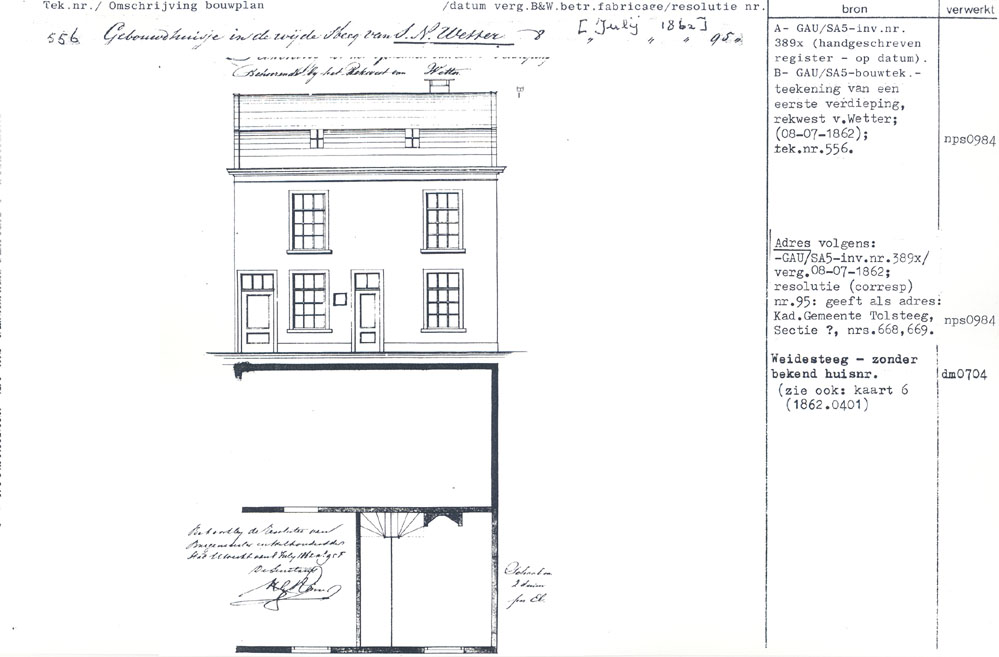 Tek.nr./ Omschrijving bouwplan /datum verg.B&W.betr.fabricage/resolutie nr.
bron
verwerkt
556 Gebouwdhuisje in de wijde Steeg van S. N. Wetter 8 [ „ July „ 1862 ] „ 95„
Behoorende by het Rekwest van Wetter
A- GAU/SA5-inv.nr.
389x (handgeschreven
register - op datum).
B- GAU/SA5-bouwtek.-
teekening van een
eerste verdieping,
rekwest v.Wetter;
(08-07-1862);
tek.nr.556.
nps0984
Adres volgens:
-GAU/SA5-inv.nr.389x/
verg.08-07-1862;
resolutie (corresp)
nr.95: geeft als adres:
Kad.Gemeente Tolsteeg,
Sectie ?, nrs.668,669.
nps0984
Weidesteeg - zonder
bekend huisnr.
dm0704
(zie ook: kaart 6
(1862.0401)
Behoort by de Resolutie van
Burgemeester en Wethouders der
Stad Utrecht van 8 July 1862 no 95
De Secretaris
Schaal van
2 duim
per El.